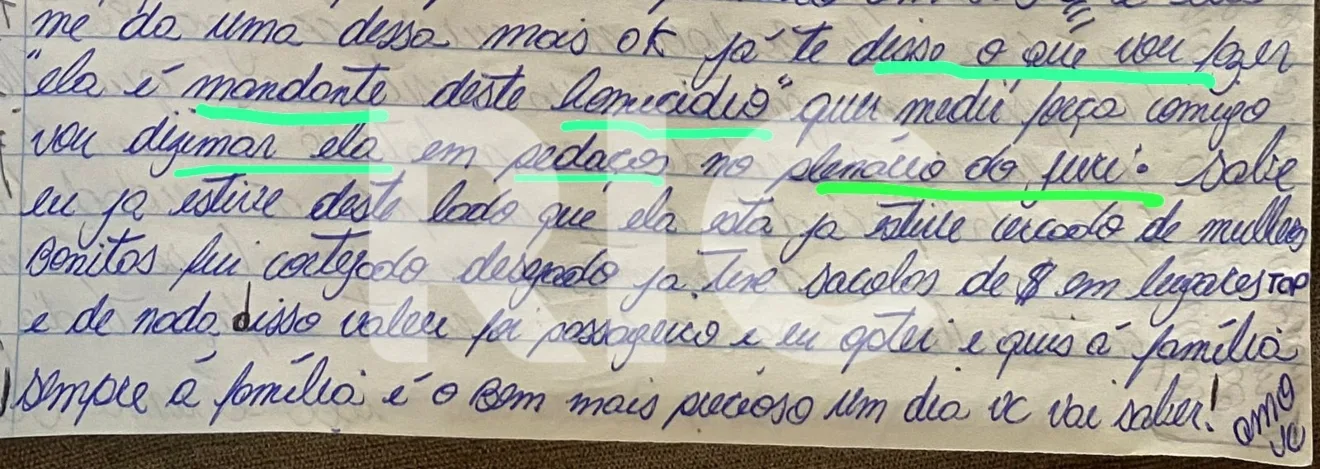 me da uma dessa mais ok já te disso o que vou fazer
"ela é mandante deste homicidio" quer medir força comigo
vou dizimar ela em pedaços no plenário do juri. Sabe
eu ja estive deste lado que ela esta ja estive cercado de mulheres
Bonitas fui cortejado desejado ja tive sacolas de $ em lugares TOP
e de nada disso valeu foi passageiro e eu optei e quis á família
sempre á família é o Bem mais precioso um dia vc vai saber!
amo
vc
RIC